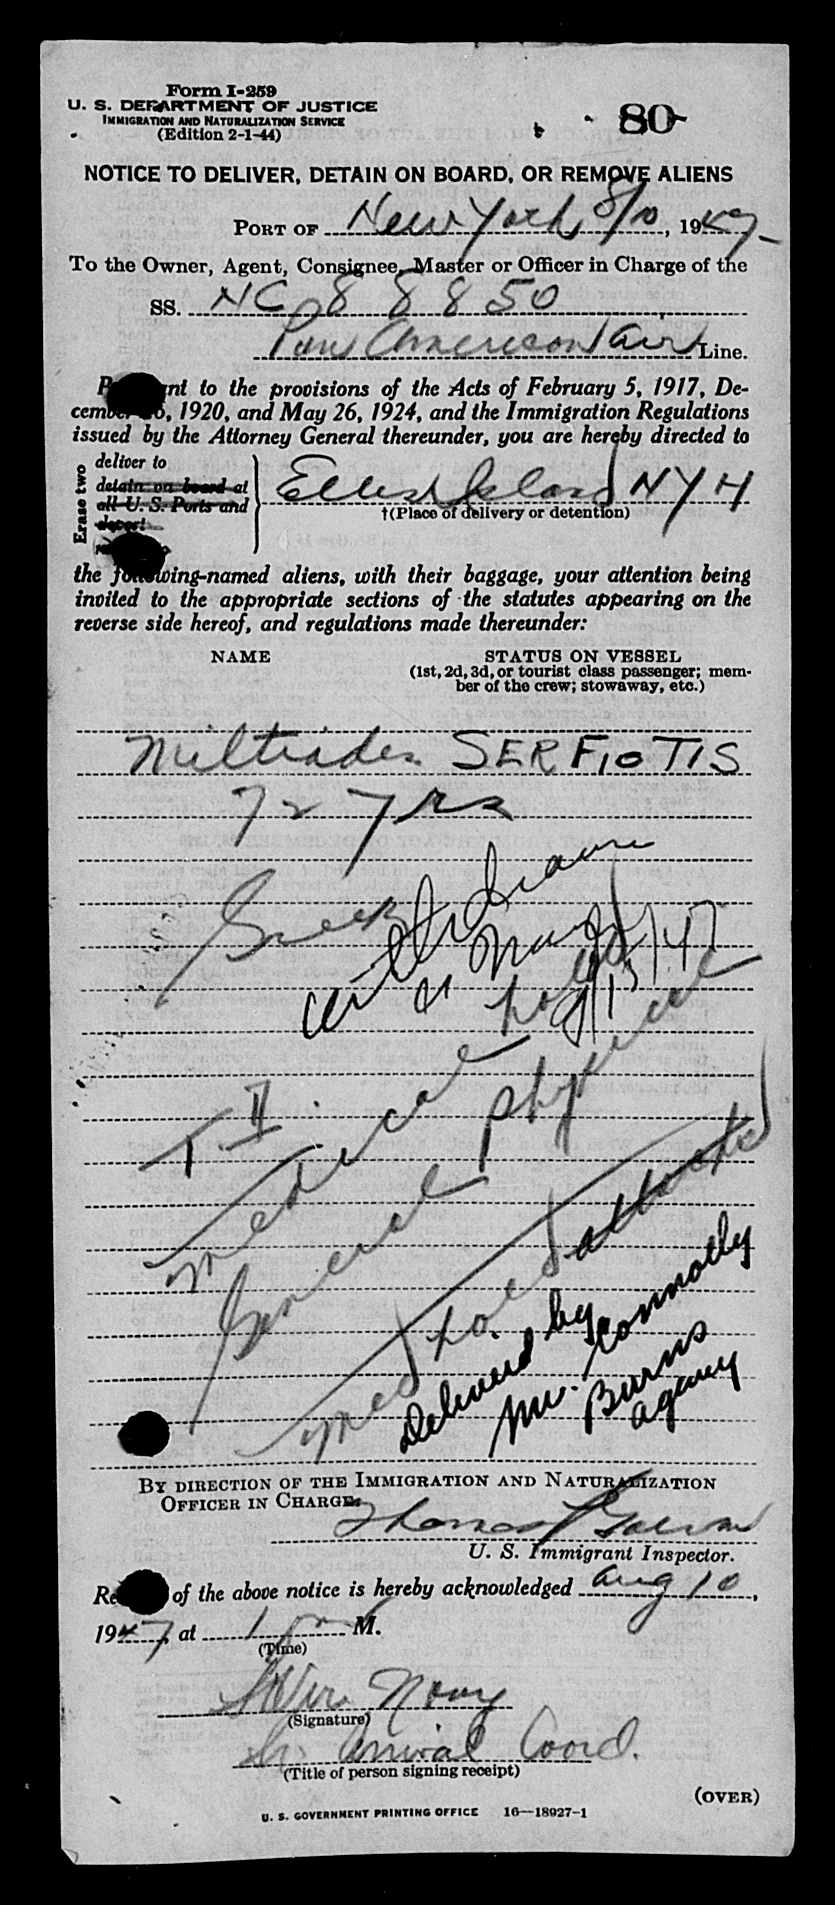 Form I-259
U. S. DEPARTMENT OF JUSTICE
IMMIGRATION AND NATURALIZATION SERVICE
(Edition 2-1-44)
80
NOTICE TO DELIVER, DETAIN ON BOARD, OR REMOVE ALIENS
PORT OF New York, 8/10, 1947
To the Owner, Agent, Consignee, Master or Officer in Charge of the
SS. NC 88850
Pan American Air Line.
nt to the provisions of the Acts of February 5, 1917, De-
cember 26, 1920, and May 26, 1924, and the Immigration Regulations
issued by the Attorney General thereunder, you are hereby directed to
Erase two
deliver to
detain on board at
all U. S. Ports and
deport
Ellis Island NYH
†(Place of delivery or detention)
the following-named aliens, with their baggage, your attention being
invited to the appropriate sections of the statutes appearing on the
reverse side hereof, and regulations made thereunder:
NAME
STATUS ON VESSEL
(1st, 2d, 3d, or tourist class passenger; mem-
ber of the crew; stowaway, etc.)
Miltiades SERFIOTIS
72 yrs
Greek
withdrawn
8/13/47
T. II.
Medical hold
General physical
Med hold attached
Delivered by
Mr. Connolly
Burns
agency
BY DIRECTION OF THE IMMIGRATION AND NATURALIZATION
OFFICER IN CHARGE:
Thomas
U. S. Immigrant Inspector.
of the above notice is hereby acknowledged Aug 10,
1947, at 1 P M.
(Time)
(Signature)
Arrival Coord.
(Title of person signing receipt)
(OVER)
U. S. GOVERNMENT PRINTING OFFICE 16—18927-1